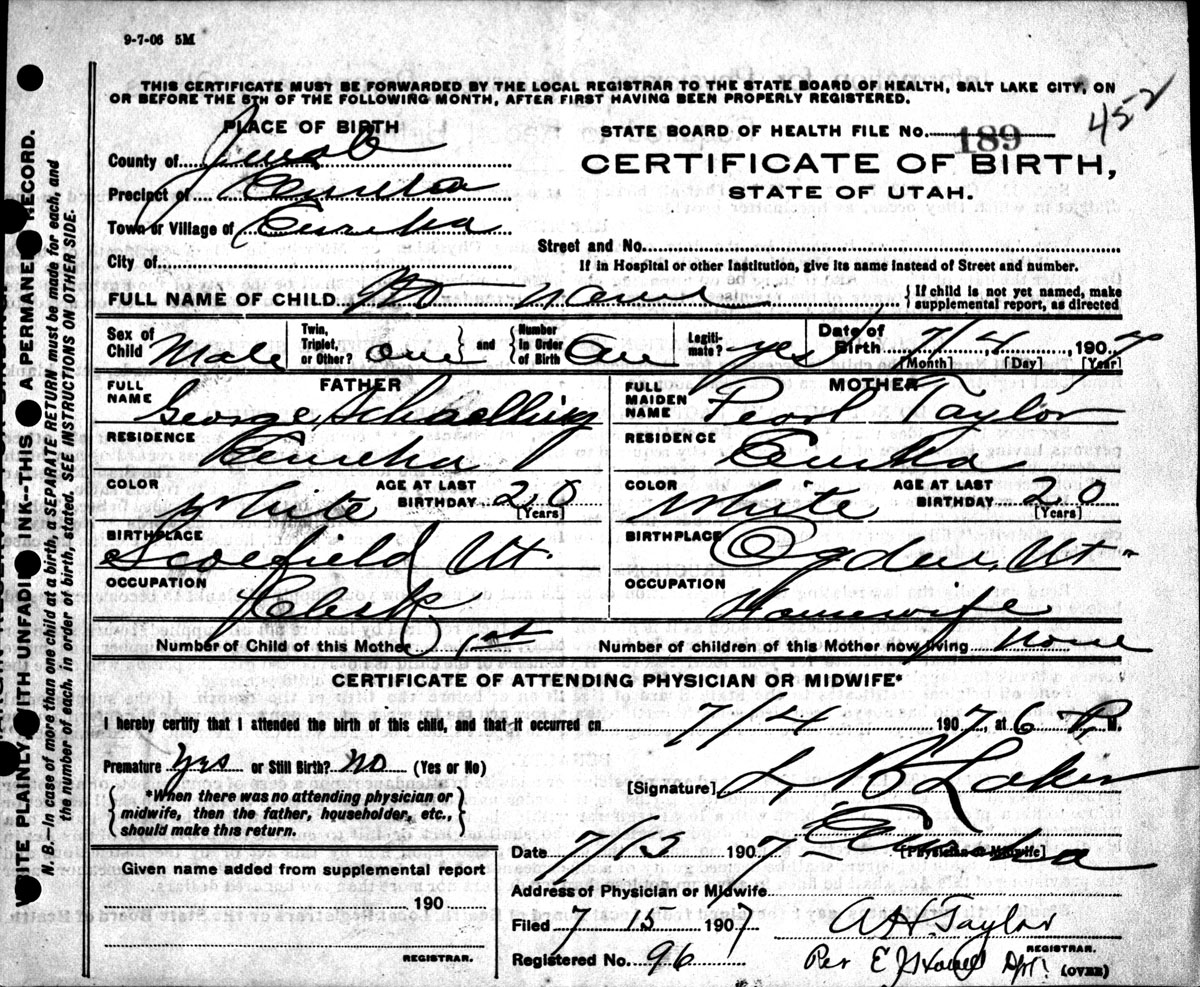 9-7-06 5M
THIS CERTIFICATE MUST BE FORWARDED BY THE LOCAL REGISTRAR TO THE STATE BOARD OF HEALTH, SALT LAKE CITY, ON
OR BEFORE THE 5TH OF THE FOLLOWING MONTH, AFTER FIRST HAVING BEEN PROPERLY REGISTERED.
452
PLACE OF BIRTH
STATE BOARD OF HEALTH FILE NO. 189
County of Juab
CERTIFICATE OF BIRTH,
Precinct of Eureka
STATE OF UTAH.
Town or Village of Eureka
Street and No.
City of
If in Hospital or other Institution, give its name instead of Street and number.
FULL NAME OF CHILD name { If child is not yet named, make
supplemental report, as directed
Sex of Child Male Twin, Triplet, or Other? one } and { Number in Order of Birth Legiti- mate? yes Date of Birth 7/4, 1907
[Month] [Day] [Year]
FATHER
MOTHER
FULL NAME George
FULL MAIDEN NAME Pearl Taylor
RESIDENCE Eureka
RESIDENCE Eureka
COLOR White AGE AT LAST BIRTHDAY 20 [Years]
COLOR White AGE AT LAST BIRTHDAY 20 [Years]
BIRTHPLACE Scofield Ut
BIRTHPLACE Ogden, Ut
OCCUPATION Clerk
OCCUPATION Housewife
Number of Child of this Mother 1st Number of children of this Mother now living none
CERTIFICATE OF ATTENDING PHYSICIAN OR MIDWIFE*
I hereby certify that I attended the birth of this child, and that it occurred on 7/4 1907, at 6 P. M.
Premature yes or Still Birth? No (Yes or No)
[Signature]
*When there was no attending physician or
midwife, then the father, householder, etc.,
should make this return.
[Physician or Midwife]
Date 7/13 1907
Eureka
Given name added from supplemental report
Address of Physician or Midwife
190
Filed 7 15 1907 A.H. Taylor
REGISTRAR.
Registered No. 96 Per E J Howell
REGISTRAR.
(OVER)
WRITE PLAINLY WITH UNFADING INK--THIS IS A PERMANENT RECORD.
N. B.--In case of more than one child at a birth, a SEPARATE RETURN must be made for each, and
the number of each, in order of birth, stated. SEE INSTRUCTIONS ON OTHER SIDE.